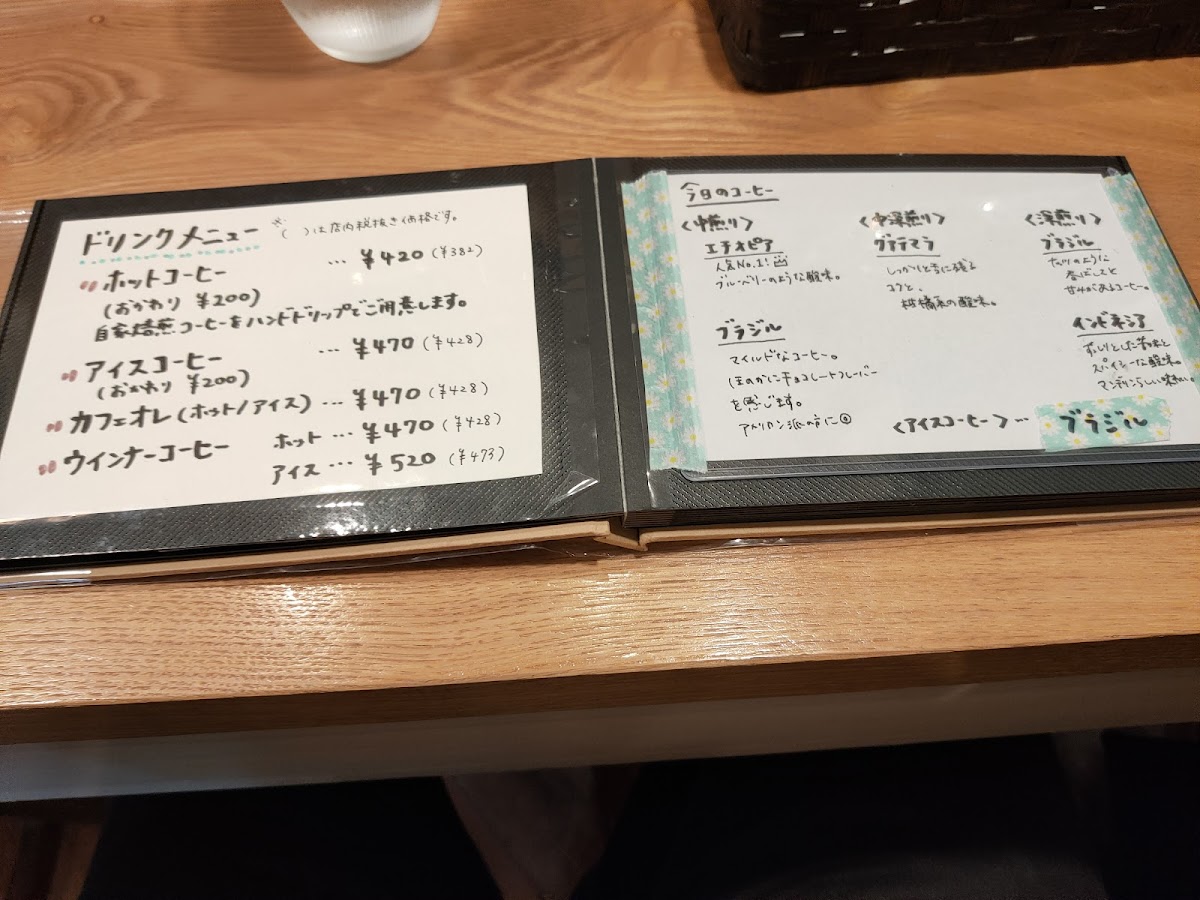 ドリンクメニュー
※( )は店内税抜き価格です。
ホットコーヒー … ¥420 (¥382)
(おかわり ¥200)
自家焙煎コーヒーをハンドドリップでご用意します。
アイスコーヒー … ¥470 (¥428)
(おかわり ¥200)
カフェオレ(ホット/アイス) … ¥470 (¥428)
ウインナーコーヒー ホット … ¥470 (¥428)
アイス … ¥520 (¥473)
今日のコーヒー
<中煎り>
エチオピア
人気No.1!
ブルーベリーのような酸味。
ブラジル
マイルドなコーヒー。
ほのかにチョコレートフレーバー
を感じます。
アメリカン派の方に◎
<中深煎り>
グアテマラ
しっかりと舌に残る
コクと、
柑橘系の酸味。
<深煎り>
ブラジル
ナッツのような
香ばしさと
甘みがあるコーヒー。
インドネシア
ずっしりとした苦味と
スパイシーな酸味。
マンデリンらしい味わい。
<アイスコーヒー>… ブラジル